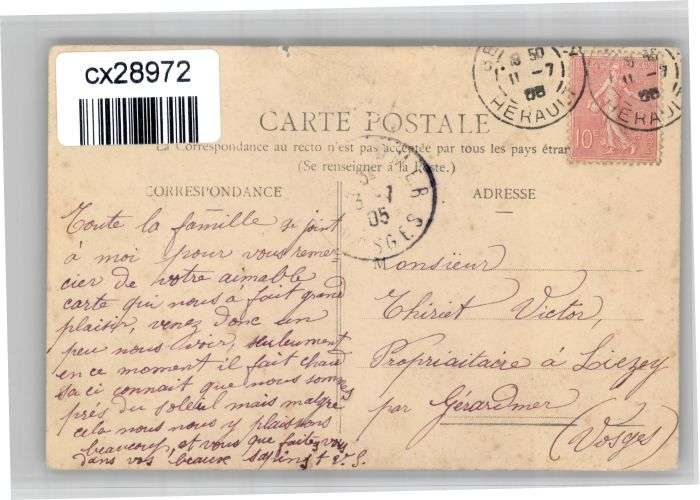 cx28972
CARTE POSTALE
La Correspondance au recto n'est pas acceptée par tous les pays étran
(Se renseigner à la Poste.)
CORRESPONDANCE
Toute la famille se joint
à moi pour vous remer-
cier de votre aimable
carte qui nous a fait grand
plaisir, venez donc un
peu nous voir, seulement
en ce moment il fait chaud
sa ci connait que nous sommes
prés du soleuil mais malgre
cela nous nous y plaisons
beaucoup, et vous que faites vous
dans vos beaux sapins
ADRESSE
Monsieur
Thiriet Victor,
Propriaitaire à Liezey
par Gérardmer
(Vosges)
18 50
11 -7
05
HERAULT
10
11 -7
HERAULT
-7
05
VOSGES